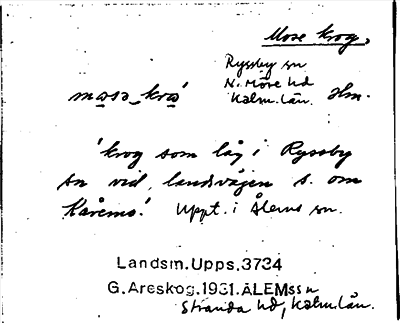 Mose krog,
Ryssby sn
N. Möre hd
Kalm. län.
Hm.
'krog som låg i Ryssby
sn vid landsvägen s. om
Kåremo.' Uppt. i Ålems sn.
Landsm.Upps.3734
G.Areskog.1931.ÅLEMssn
Stranda hd, Kalm.län.